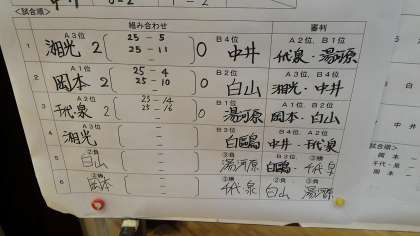 <試合順>
組み合わせ 審判
1 A3位 湘光 2 25 - 5 25 - 11 0 B4位 中井 A2位、B1位 代泉・湯河原
2 A1位 岡本 2 25 - 4 25 - 10 0 B2位 白山 A3位、B4位 湘光・中井
3 A2位 代泉 2 25 - 14 25 - 16 0 B1位 湯河原 A1位、B2位 岡本・白山
4 A3位 湘光 - - B3位 白鷗 B4位、A2位 中井・千代泉
5 ②負 白山 - - ③負 湯河原 B3位 白鷗・千代泉 ③勝
6 ②勝 岡本 - - ③勝 千代泉 ②負 白山 ③負 湯河原
試合順>
岡本
千代・泉
岡本